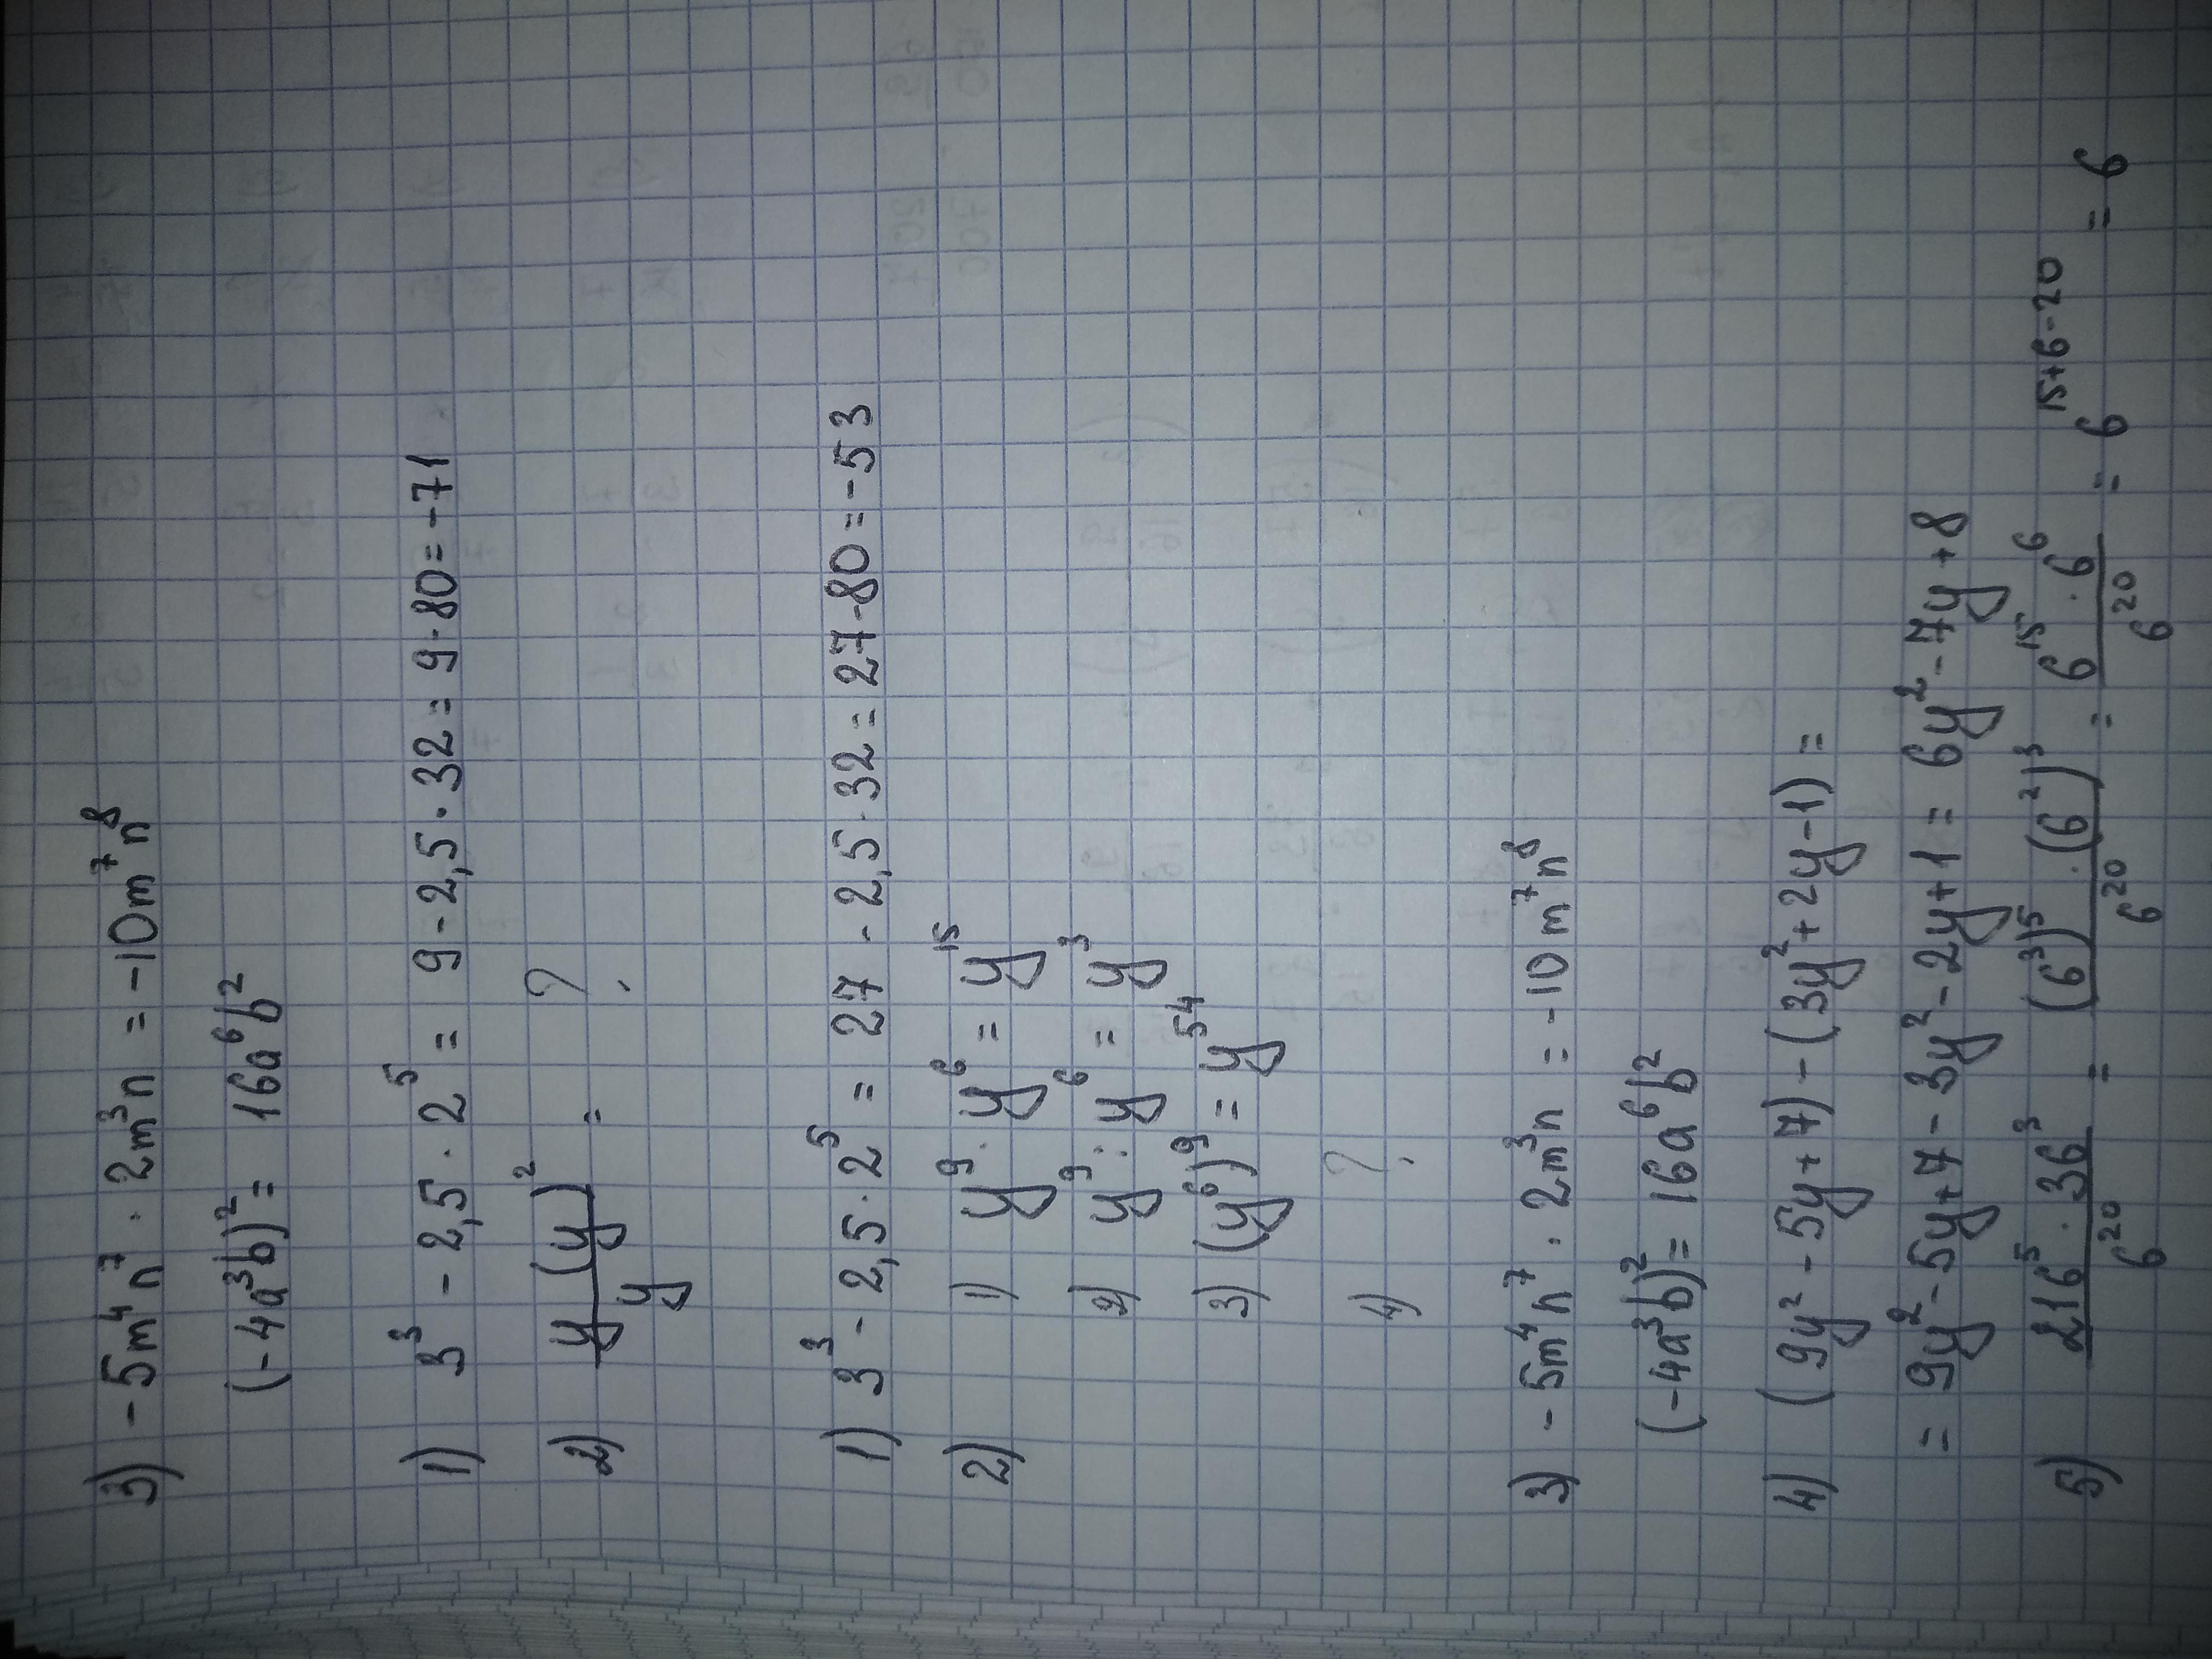 3) -5m⁴n⁷ · 2m³n = -10m⁷n⁸
(-4a³b)² = 16a⁶b²
1) 3³ - 2,5 · 2⁵ = 9 - 2,5 · 32 = 9 - 80 = -71
2) y (y)² / y = ?
1) 3³ - 2,5 · 2⁵ = 27 - 2,5 · 32 = 27 - 80 = -53
2) 1) y⁹ · y⁶ = y¹⁵
2) y⁹ : y⁶ = y³
3) (y⁶)⁹ = y⁵⁴
4) ?
3) -5m⁴n⁷ · 2m³n = -10m⁷n⁸
(-4a³b)² = 16a⁶b²
4) (9y² - 5y + 7) - (3y² + 2y - 1) =
= 9y² - 5y + 7 - 3y² - 2y + 1 = 6y² - 7y + 8
5) 216⁵ · 36³ / 6²⁰ = (6³)⁵ · (6²)³ / 6²⁰ = 6¹⁵ · 6⁶ / 6²⁰ = 6¹⁵⁺⁶⁻²⁰ = 6